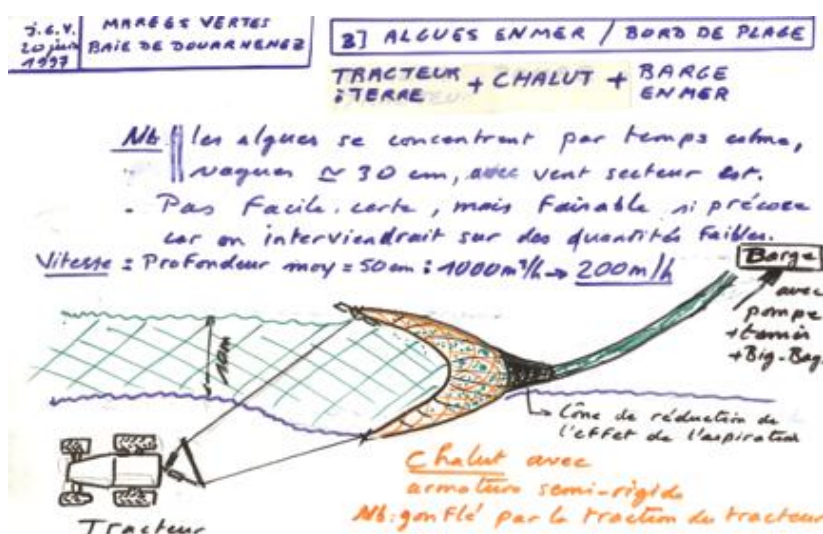 J.G.V.
20 juin
1997
MARÉES VERTES
BAIE DE DOUARNENEZ
3] ALGUES EN MER / BORD DE PLAGE
TRACTEUR
à TERRE
+ CHALUT +
BARGE
EN MER
Nb les algues se concentrent par temps calme,
vagues ≃ 30 cm, avec vent secteur est.
. Pas Facile, certe, mais Faisable si précoce
car on interviendrait sur des quantités Faibles.
Vitesse = Profondeur moy = 50 cm : 1000 m³/h → 200 m/h
Barge
avec
pompe
+ tamis
+ Big-Bag.
10m
Cône de réduction de
l'effet de l'aspiration
Chalut avec
armature semi-rigide
Nb: gonflé par la traction du tracteur
Tracteur